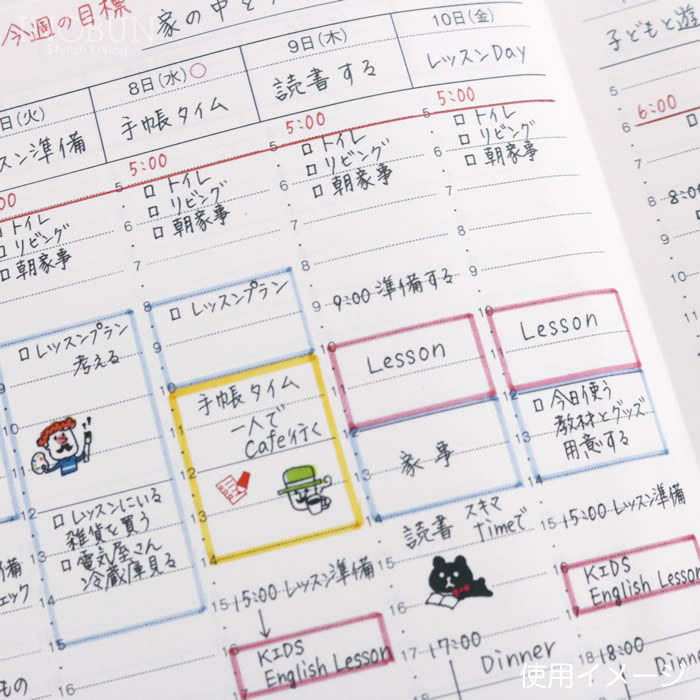 今週の目標
家の中を
OBUN
Stylish Living
日(火)
8日(水)
9日(木)
10日(金)
スン準備
手帳タイム
読書する
レッスンDay
子どもと遊
00
5:00
5:00
5:00
6:00
□ トイレ
□ リビング
□ 朝家事
5
6
7
□ トイレ
□ リビング
□ 朝家事
5
6
7
□ トイレ
□ リビング
□ 朝家事
5
6
7
□ トイレ
□ リビング
□ 朝家事
5
6
7
8
□ レッスンプラン
考える
9
10
11
12
□ レッスンにいる
雑貨を買う
□ 電気屋さん
冷蔵庫見る
13
14
15
8
□ レッスンプラン
10
手帳タイム
一人で
Cafe行く
11
12
13
14
15:00 レッスン準備
KIDS
English Lesson
16
8
9
9:00 準備する
10
Lesson
11
12
家事
13
読書 スキマ
timeで
15
16
17
17:00
Dinner
8
9
10
Lesson
11
12
□ 今日使う
教材とグッズ
用意する
13
15
15:00 レッスン準備
16
KIDS
English Lesson
17
18
18:00
Dinner
使用イメージ